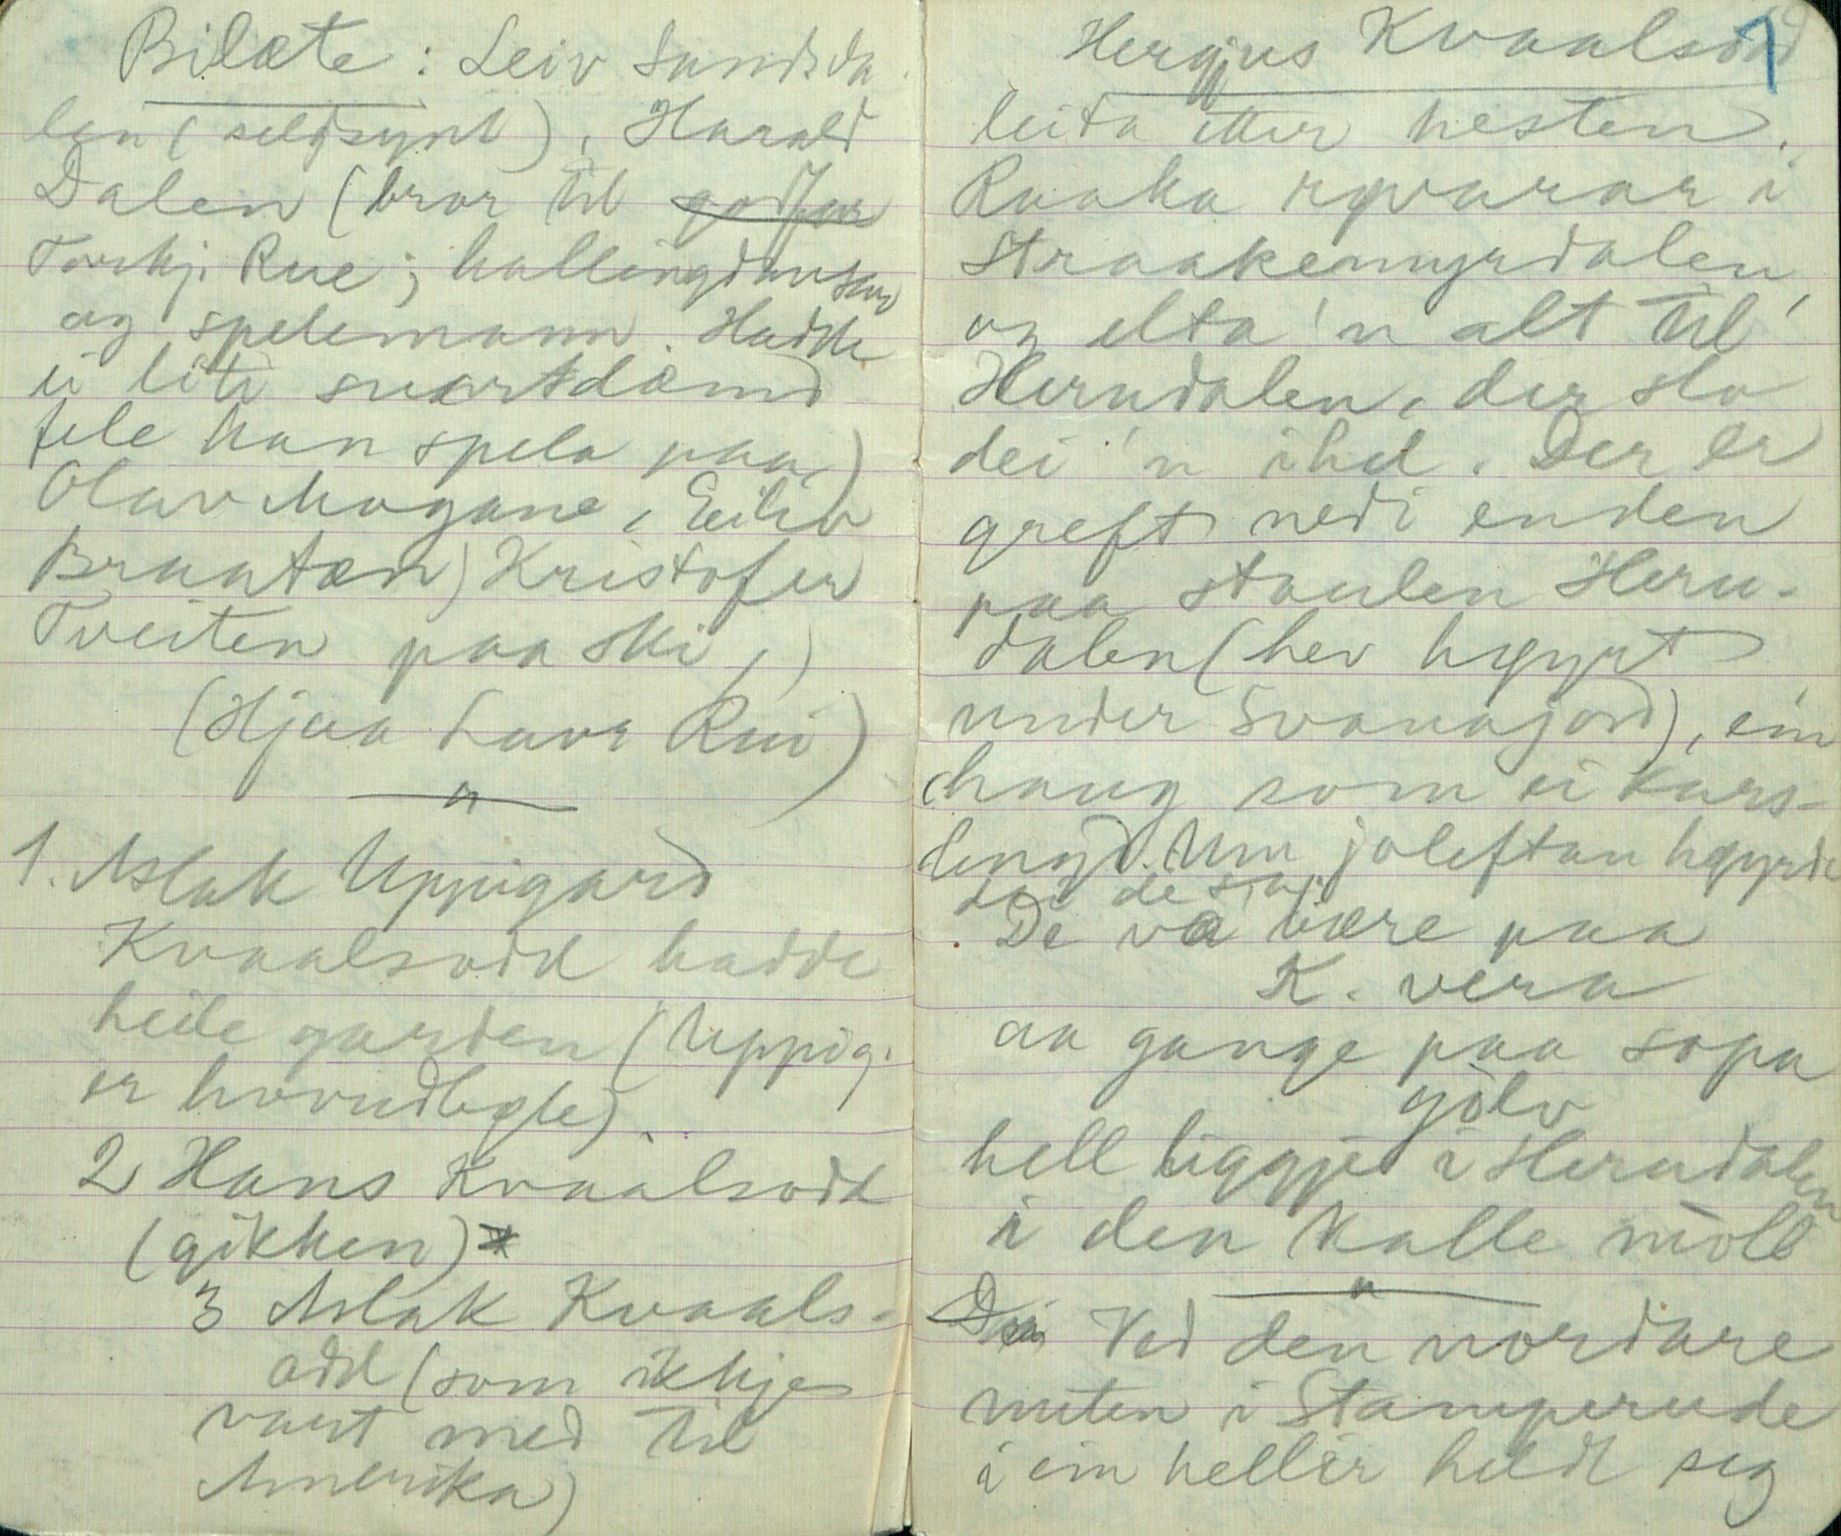 Bilæte: Leiv Sundsda
len (seldsynt), Harald
Dalen (bror til godfar
Torkj. Rue; hallingdansar
og spelemann. Hadde
ei liti svartdæmd
fele han spela paa)
Olav Mogane, Eiliv
Braatæn) Kristofer
Tveiten paa ski,)
(Hjaa Lavr Rui)
1. Aslak Uppigard
Kvaalsodd hadde
heile garden (Uppig.
er hovudbøle).
2 Hans Kvaalsodd
(gikken)
3 Aslak Kvaals-
odd (som ikkje
vart med til
Amerika)
1
Hergjus Kvaalsodd
leita etter hesten.
Raaka rypurar i
Straakemyrdalen,
og elta 'n alt til
Herudalen, der slo
dei 'n ihel. Der er
greft nedi enden
paa staulen Heru-
dalen (hev høyrt
under Svanajord), ein
haug som ei kars-
lengd. Um joleftan høyrde
dei de sa:
De va være paa
K. vera
aa gange paa sopa
golv
hell liggje i Herudalen
i den kalle moll
Ved den nordare
nuten i Stamperude
i ein heller heldt seg